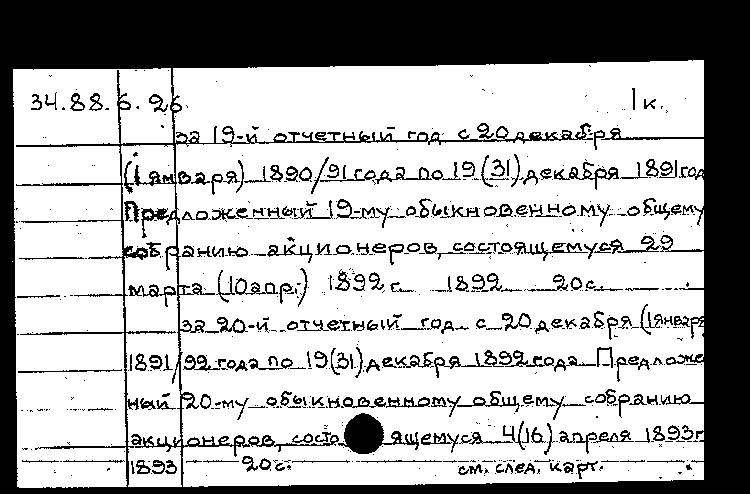 34.88.6.26 1к.
за 19-й отчетный год с 20 декабря
(1 января) 1890/91 года по 19 (31) декабря 1891 год
Предложенный 19-му обыкновенному общему
собранию акционеров, состоящемуся 29
марта (10 апр.) 1892 г. 1892 20с.
за 20-й отчетный год с 20 декабря (1 января
1891/92 года по 19(31) декабря 1892 года Предложе
ный 20-му обыкновенному общему собранию
акционеров, состоящемуся 4(16) апреля 1893г
1893 20с. см. след. карт.